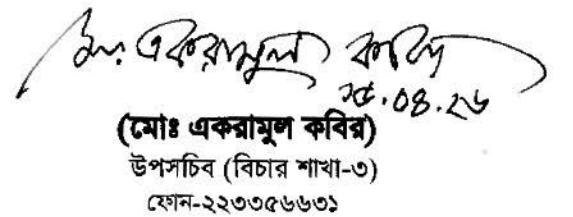 মোঃ একরামুল কবির
১৫.০৪.২৬
(মোঃ একরামুল কবির)
উপসচিব (বিচার শাখা-৩)
ফোন-২২৩৩৫৬৬৩১